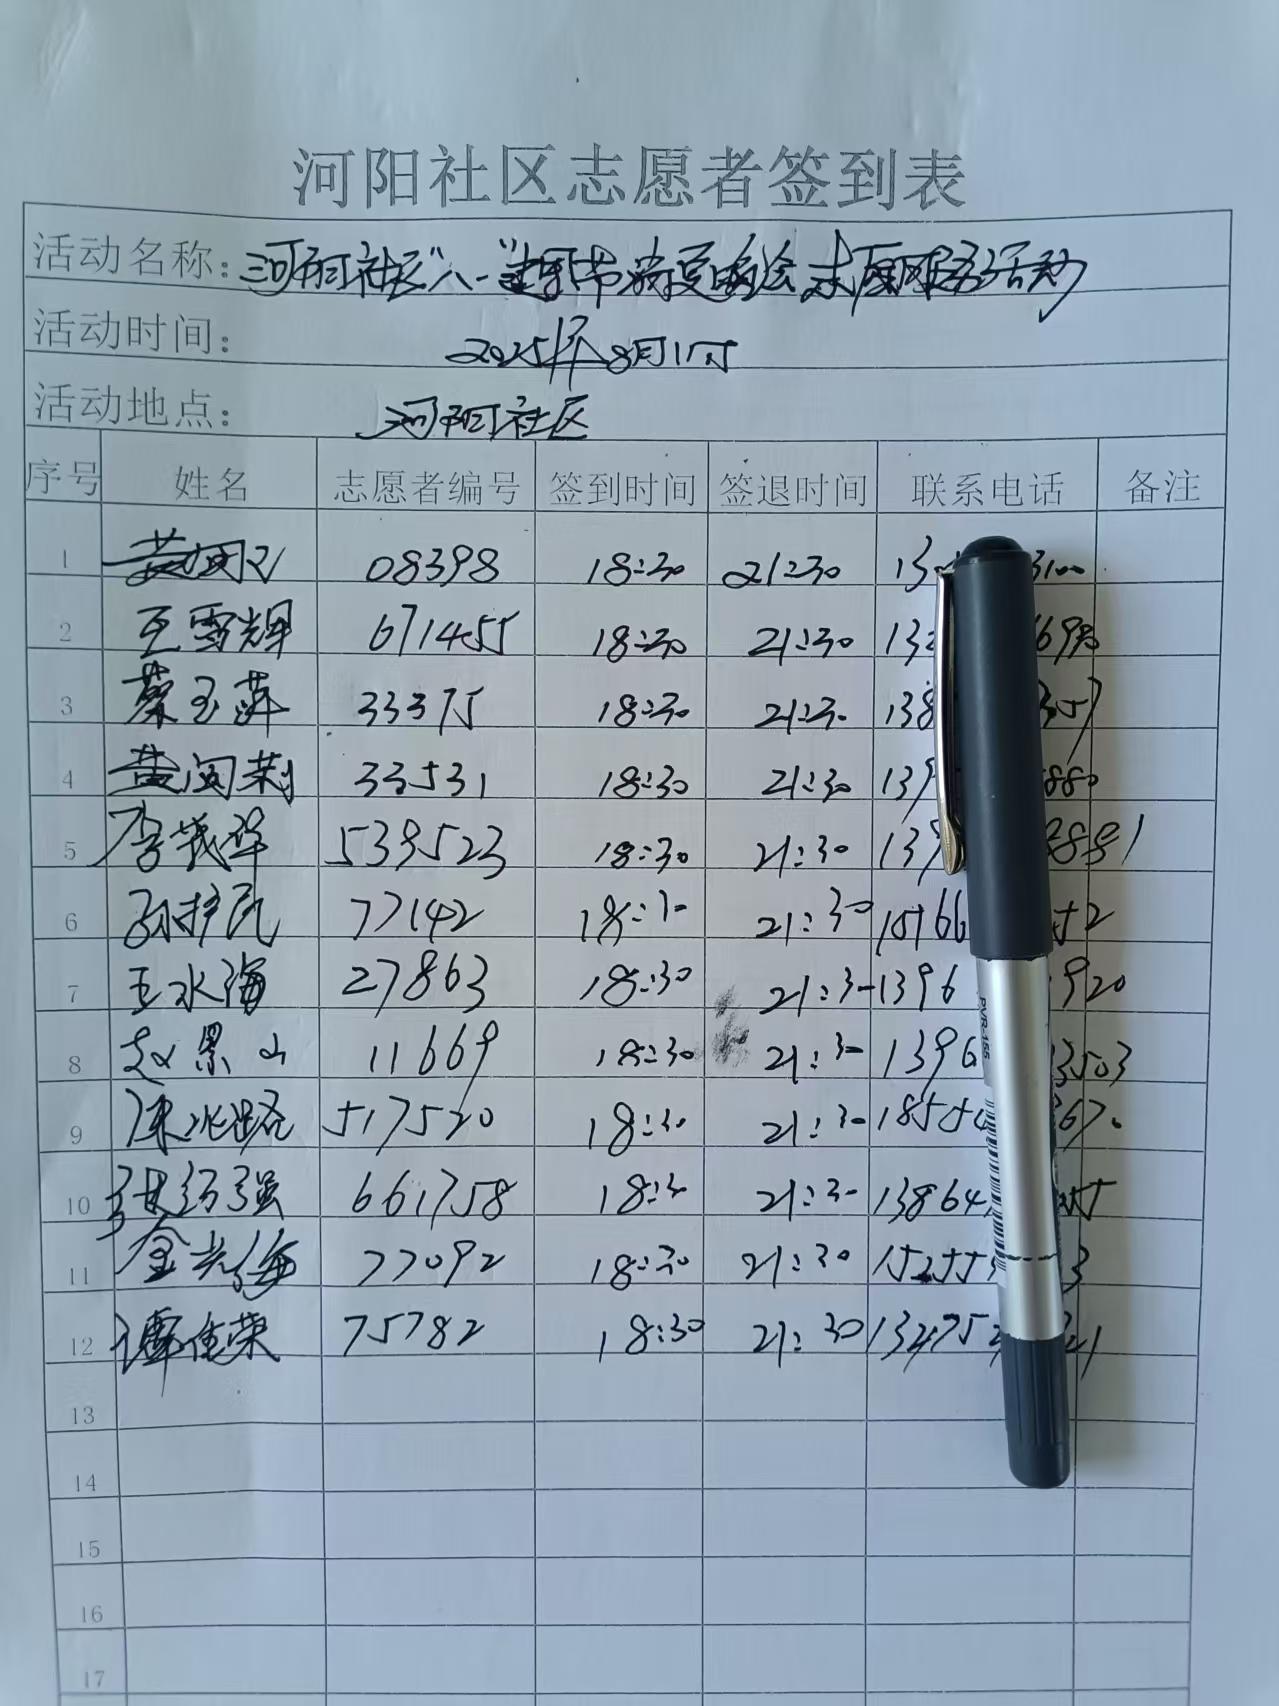 河阳社区志愿者签到表
活动名称：河阳社区"八一"建军节消夏晚会志愿服务活动
活动时间： 2025年8月1日
活动地点： 河阳社区
序号 姓名 志愿者编号 签到时间 签退时间 联系电话 备注
1 08398 18:30 21:30 13 3100
2 王雪辉 671455 18:30 21:30 13 698
3 蔡玉萍 33375 18:30 21:30 138 357
4 黄闽荆 33531 18:30 21:30 139 880
5 李茂华 539523 18:30 21:30 139 8891
6 孙护民 77142 18:30 21:30 15166 52
7 王水海 27863 18:30 21:30 1396 920
8 赵景山 11669 18:30 21:30 1396 3503
9 陈兆路 517520 18:30 21:30 18554 670
10 强 661758 18:30 21:30 13864 55
11 金光海 77092 18:30 21:30 15255 3
12 谭佳荣 75782 18:30 21:30 132752 21
13
14
15
16
17
PVR-155